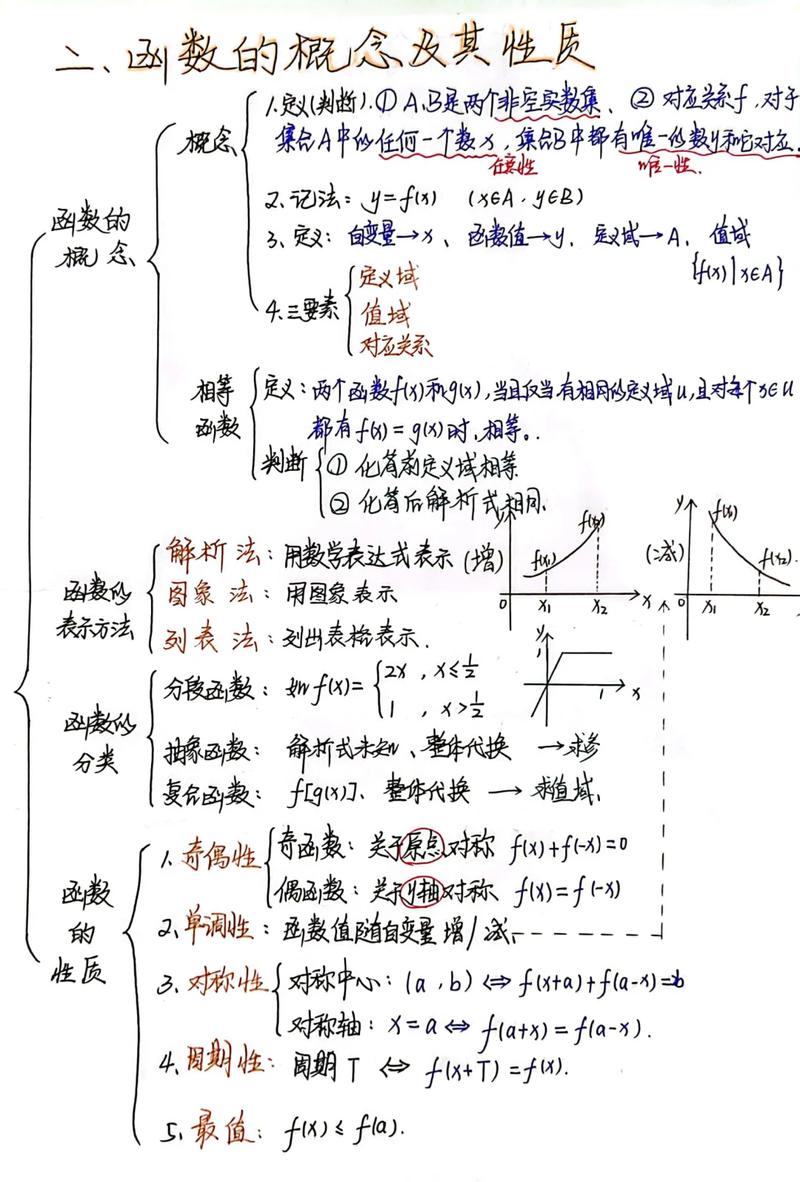 二、函数的概念及其性质
函数的概念
概念
1.定义(判断).① A,B是两个非空实数集、② 对应关系f,对于
集合A中的任何一个数x,集合B中都有唯一的数y和它对应.
任意性
唯一性.
2.记法: y=f(x) (x∈A,y∈B)
3.定义: 自变量→x、函数值→y、定义域→A、值域
{f(x)|x∈A}
4.三要素
定义域
值域
对应关系
相等函数
定义:两个函数f(x)和g(x),当且仅当有相同的定义域U,且对每个x∈U
都有f(x)=g(x)时,相等。
判断
① 化简前定义域相等
② 化简后解析式相同.
函数的表示方法
解析法:用数学表达式表示
图象法:用图象表示
列表法:列出表格表示.
(增)
y
f(x₁)
f(x₂)
0
x₁
x₂
x
(减)
y
f(x₁)
f(x₂).
0
x₁
x₂
函数的分类
分段函数: 如f(x)= {2x , x≤1/2
1 , x>1/2
y
1
1
x
抽象函数: 解析式未知、整体代换 →求参
复合函数: f[g(x)]、整体代换 → 求值域.
函数的性质
1.奇偶性
奇函数: 关于原点对称 f(x)+f(-x)=0
偶函数: 关于y轴对称 f(x)=f(-x)
2.单调性: 函数值随自变量增/减.
3.对称性
对称中心: (a,b) ⇔ f(x+a)+f(a-x)=b
对称轴: x=a ⇔ f(a+x)=f(a-x).
4.周期性: 周期T ⇔ f(x+T)=f(x).
5.最值: f(x)≤f(a).